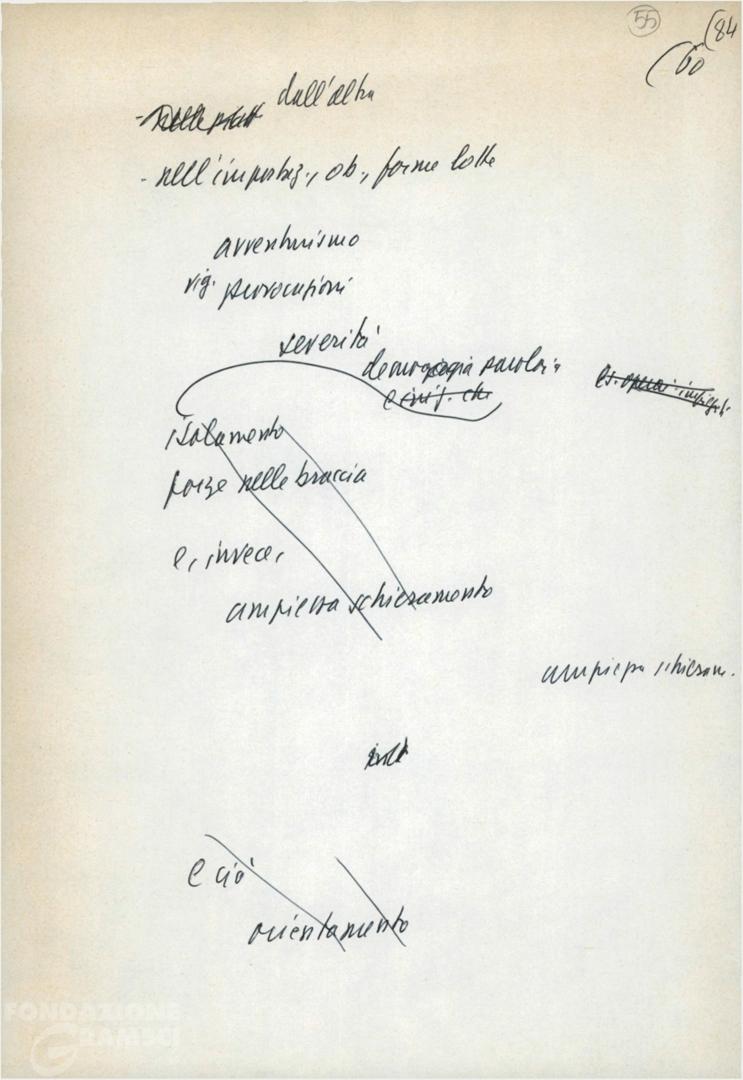 55
(84
(60
- dall'altra
- nell'impostaz., ob., forme lotte
avventurismo
vig. provocazioni
severità
demagogia parolaia
isolamento
forze nelle braccia
e, invece,
ampiezza schieramento
ampiezza schieram.
e ciò
orientamento
FONDAZIONE
GRAMSCI